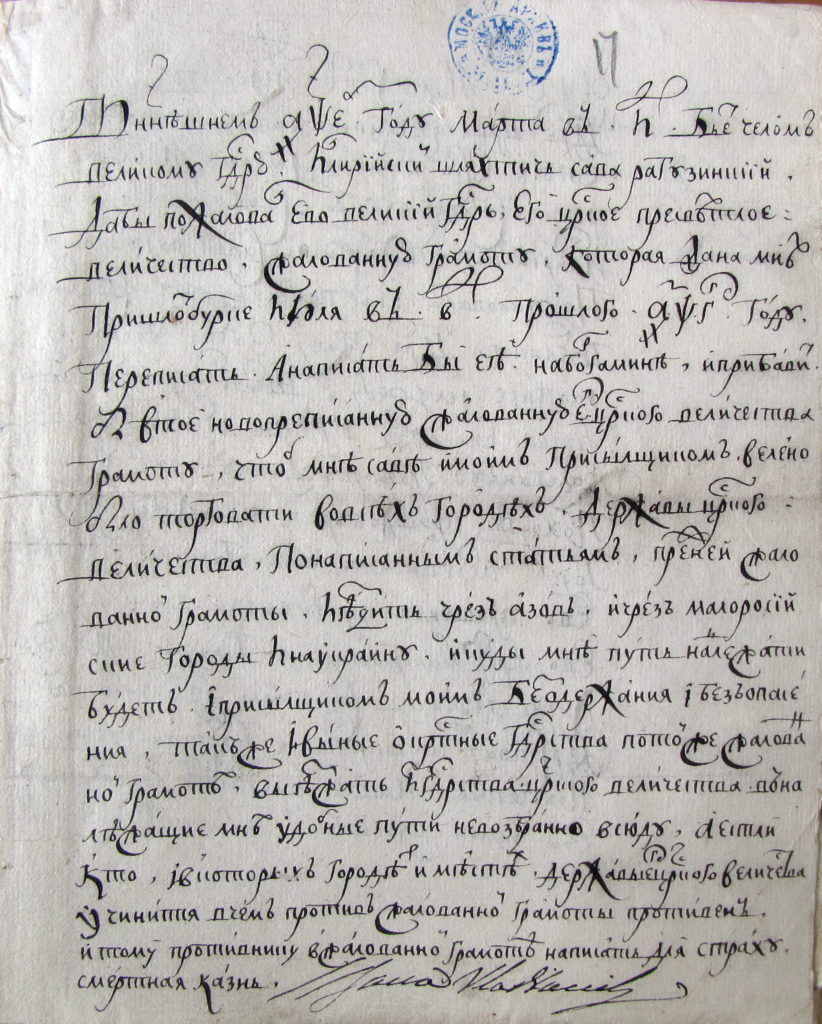 МОСК АРХИВЪ
17
Нынѣшнемъ аѱе году марта въ. и. бьет челомъ
великому гдрю. Илирійский шляхтичь сава рагузинскій.
Дабы пожаловал ево великій гдрь, его црское пресвѣтлое
величество, жалованную грамоту, которая дана мнѣ
При шлотбурке июля въ. в. прошлого. аѱг. году.
Переписать. А написать бы еѣ на пергаминѣ, и прибавит.
В тое новопреписанную жалованную его црского величества
грамоту, чтоб мнѣ савѣ и моимъ присылщикомъ велено
было торговати во всѣхъ городѣхъ, державы црского
величества, По написаннымъ статьямъ, прежней жало
ванной грамоты. И ѣздить чрезъ азовъ, и чрезъ малоросій
ские городы и на украйну. и куды мнѣ путь належати
будетъ. і присылщикомъ моимъ без одержания і безъ опасе
ния, такъ же і в ыные окрстные гдрства по той же жалова
ной грамотѣ, выѣзжать из гдрства црского величества в на
лѣжащие мнѣ удобные пути невозбранно всюду, а естли
кто, і в которыхъ городѣх и мѣстѣх, державы его црского величества
учинитца в чем противъ жалованной грамоты противенъ.
и тому противнику в жалованной грамотѣ написать для страху.
смертная казнь.